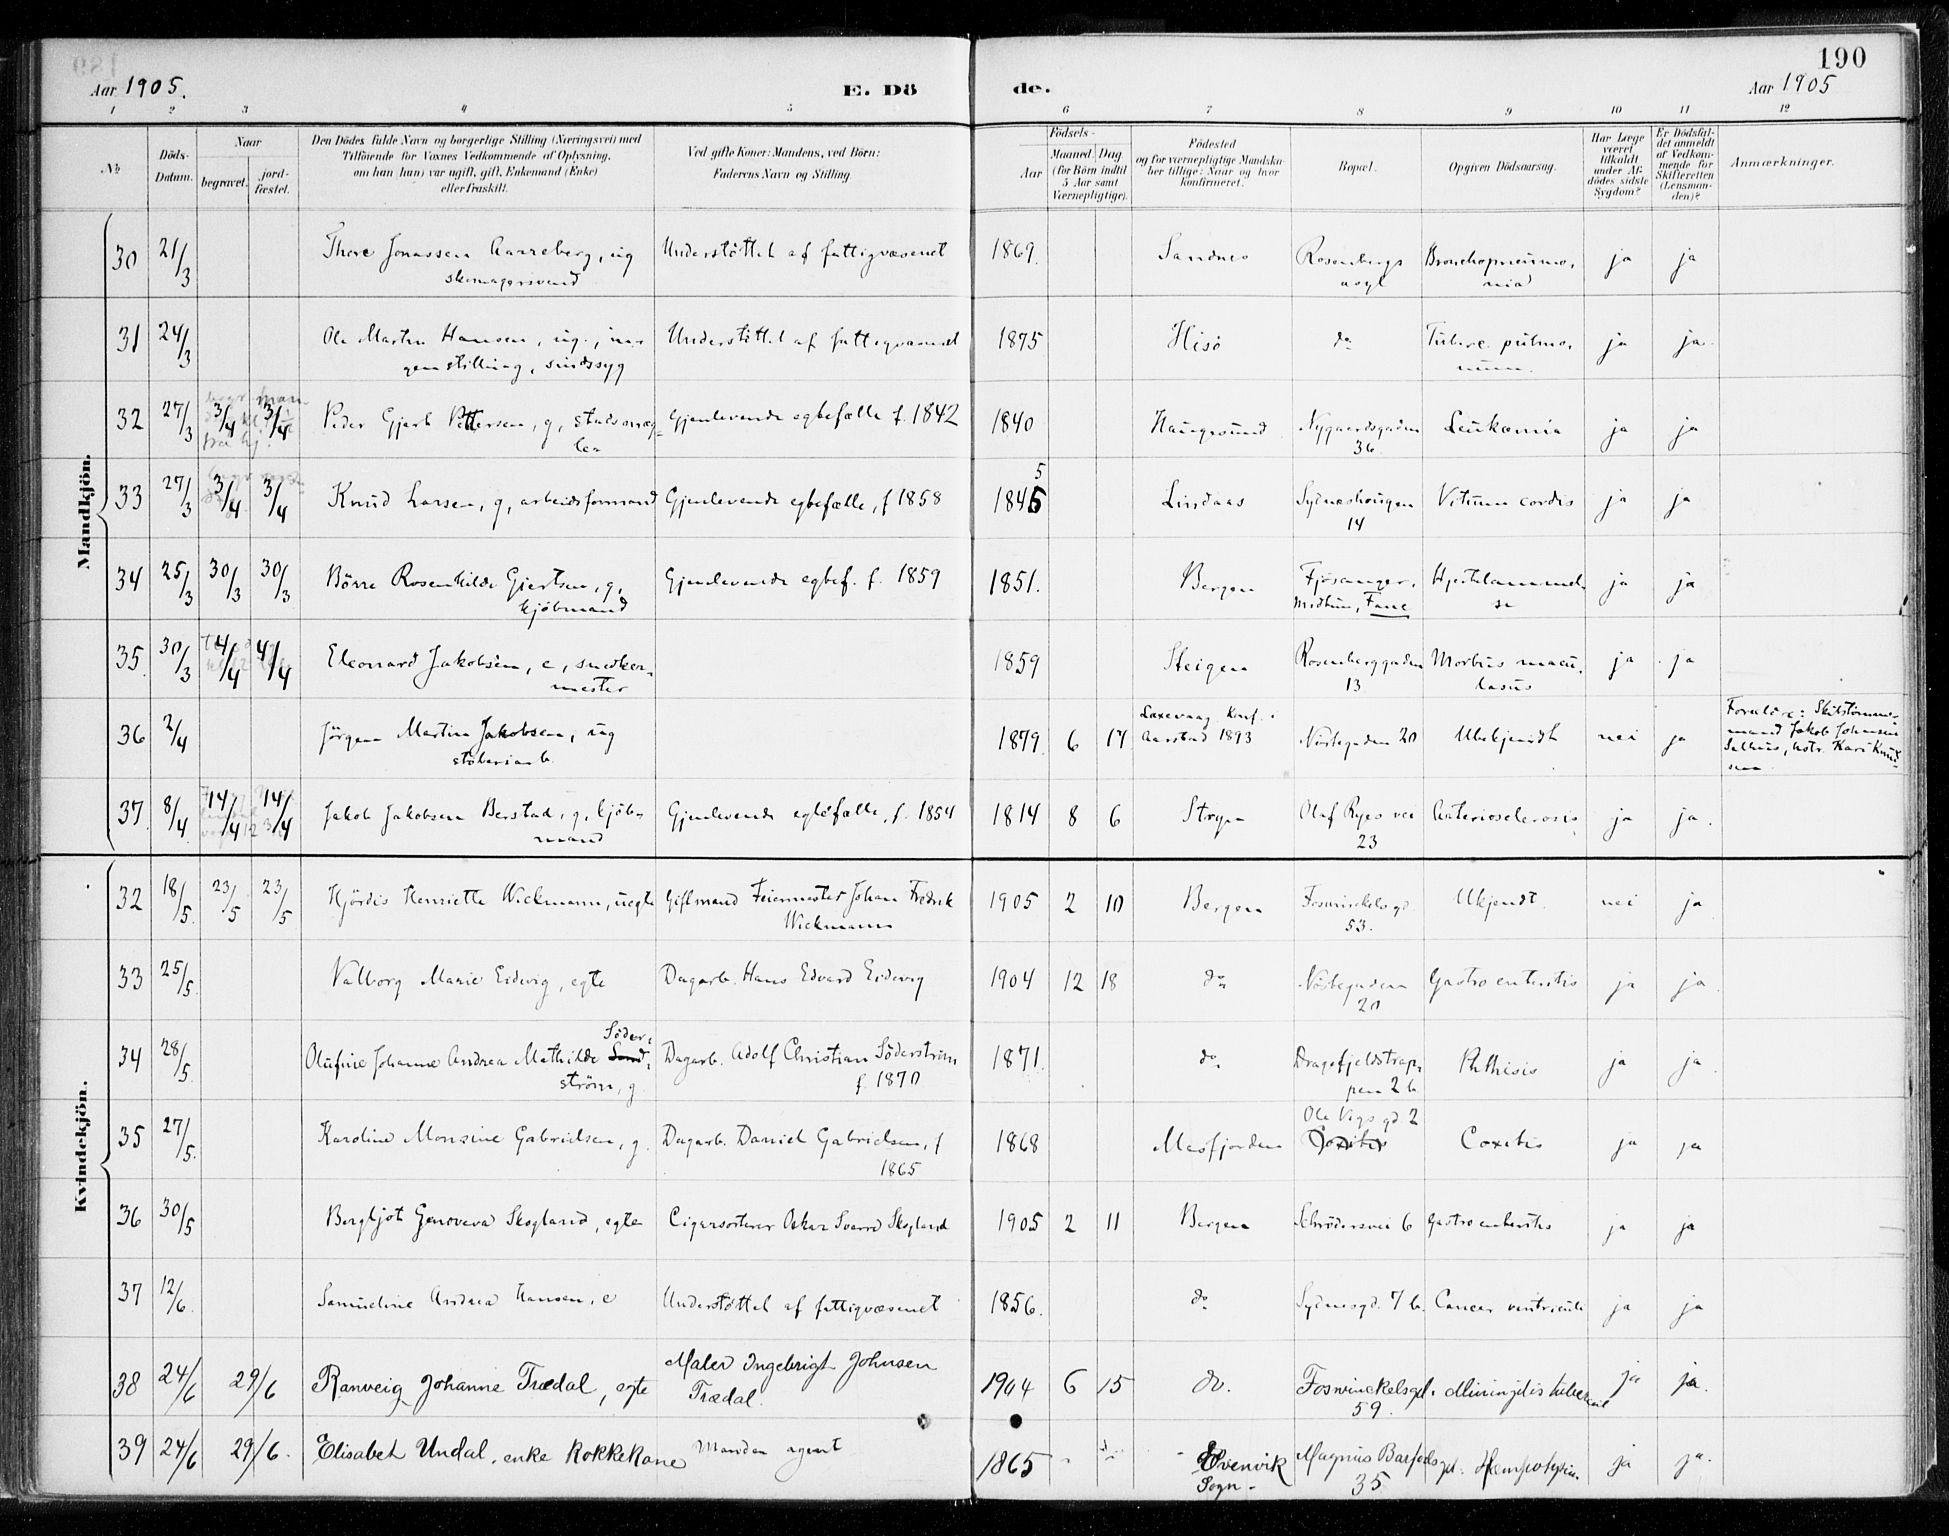 190
Aar 1905.
E. Dö
de.
Aar 1905
1 2 3 4 5 6 7 8 9 10 11 12
No.
Döds-
Datum.
Naar
begravet.
jord-
fæstet.
Den Dödes fulde Navn og borgerlige Stilling (Næringsvei) med
Tilföiende for Voxnes Vedkommende af Oplysning,
om han (hun) var ugift, gift, Enkemand (Enke)
eller fraskilt.
Ved gifte Koner: Mandens, ved Börn:
Faderens Navn og Stilling
Födsels-
Aar
Maaned. Dag.
(for Börn indtil
5 Aar samt
Værnepligtige).
Födested
og for værnepligtige Mandskaber
tillige: Naar og hvor
konfirmeret.
Bopæl.
Opgiven Dödsaarsag.
Har Læge
været
tilkaldt
under Afdödes
sidste
Sygdom?
Er Dödsfaldet
anmeldt
af Vedkommende
for
Skifteretten
(Lensmanden)?
Anmærkninger.
Mandkjön.
30 21/3 Thore Jonassen Aarreberg, ug Understöttet af fattigvæsenet 1869. Sandnes Rosenbergs Bronchopneumo- ja ja
skomagersvend asyl nia
31 24/3 Ole Martin Hansen, ug., in- Understöttet af fattigvæsenet 1875 Hisö do Tuberc. pulmo- ja ja.
gen stilling, sindssyg num.
32 27/3 3/4 3/4 Peder Gjert Pettersen, g, stadsmæg- Gjenlevende egtefælle f. 1842 1840 Haugesund Nygaardsgaden Leukæmia ja ja
ler 36
5
33 27/3 3/4 3/4 Knud Larsen, g, arbeidsformand Gjenlevende egtefælle, f 1858 1845 Lindaas Sydneshougen Vitium cordis ja ja
14
34 25/3 30/3 30/3 Börre Rosenkilde Gjertsen, g, Gjenlevende egtef. f. 1859 1851. Bergen Fjösanger, Hjertelammel- ja ja
kjöbmand Midthun, Fane se
35. 30/3 4/4 4/4 Eleonard Jakobsen, e, snedker- 1859 Steigen Rosenberggaden Morbus macu- ja ja
mester 13 losus
36 2/4 Jörgen Martin Jakobsen, ug 1879. 6 17 Laxevaag. Konf. i Nöstegaden 20 Ubekjendt nei ja Forældre: Skibstömmer-
stöberiarb. Aarstad 1893 mand Jakob Johansen
Salhus, hstr. Kari Knud-
sen
37. 8/4 14/4 14/4 Jakob Jakobsen Berstad, g, kjöb- Gjenlevende egtefælle, f. 1854 1814 8 6 Stryn Olaf Ryes vei Arteriosclerosis ja ja.
mand 23
Kvindekjön.
32 18/5. 23/5 23/5 Hjördis Henriette Wickmann, uegte Gift mand Feiermester Johan Fredrik 1905 2 10 Bergen Foswinckels gd. Ukjendt. nei ja
Wickmann 53.
33 25/5. Valborg Marie Eidevig, egte Dagarb. Hans Edvard Eidevig 1904 12 18 do Nöstegaden Gastroenteritis ja ja
20
Söder-
34 28/5. Olufine Johanne Andrea Mathilde Sand- Dagarb. Adolf Christian Söderström 1871 do Dragefjeldstrap- Phthisis ja ja
ström, g f. 1870 pen 2 b
Ole Vigs gd 2
35 27/5. Karoline Monsine Gabrielsen, g. Dagarb. Daniel Gabrielsen, f 1868 Masfjorden Coxitis Coxitis ja ja
1865
36 30/5 Bergljot Genoveva Skogland, egte Cigarsorterer Oskar Sverre Skogland 1905 2 11 Bergen Schrödersvei 6 Gastroenteritis ja ja
37 12/6. Samueline Andrea Hansen, e Understöttet af fattigvæsenet 1856. do Sydnesgd. 7 b. Cancer ventriculi ja ja
38 24/6 29/6 Ranveig Johanne Trædal, egte Maler Ingebrigt Johnsen 1904 6 15 do. Foswinckelsgd. Miningitis tubercul ja ja.
Trædal. 59.
39 24/6 29/6. Elisabet Undal, enke Kokkekone Manden agent 1865 - Evenvik Magnus Barfods gd. ja ja.
Sogn - 35